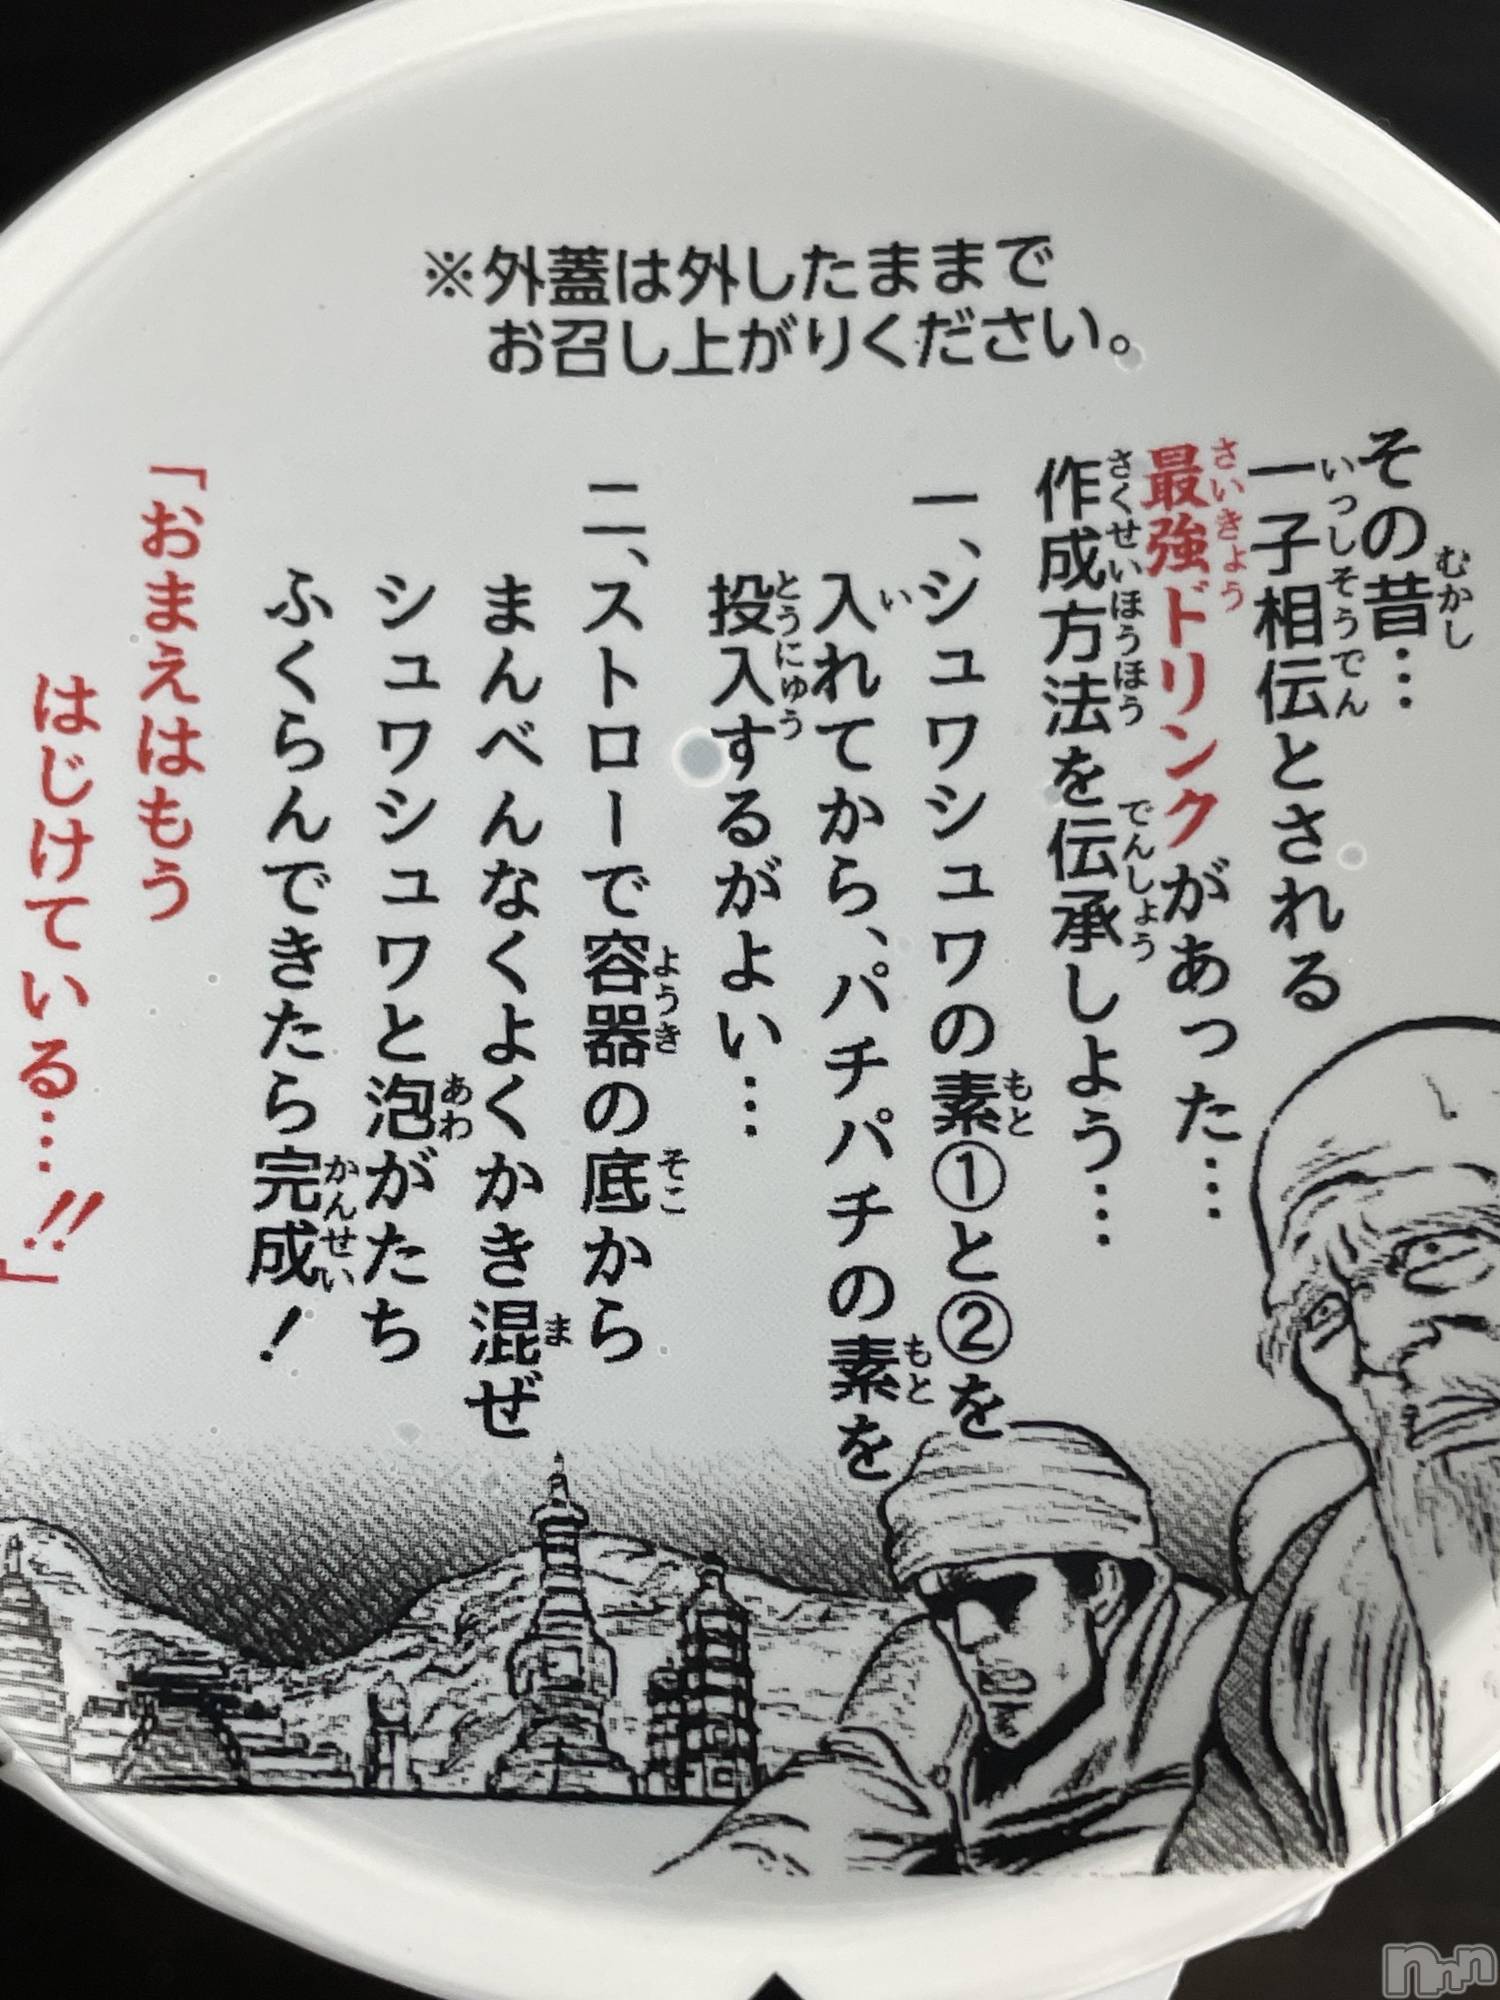 ※外蓋は外したままで
お召し上がりください。
その昔…
一子相伝とされる
最強ドリンクがあった…
作成方法を伝承しよう…
一、シュワシュワの素①と②を
入れてから、パチパチの素を
投入するがよい…
二、ストローで容器の底から
まんべんなくよくかき混ぜ
シュワシュワと泡がたち
ふくらんできたら完成！
「おまえはもう
はじけている…!!」
nnn